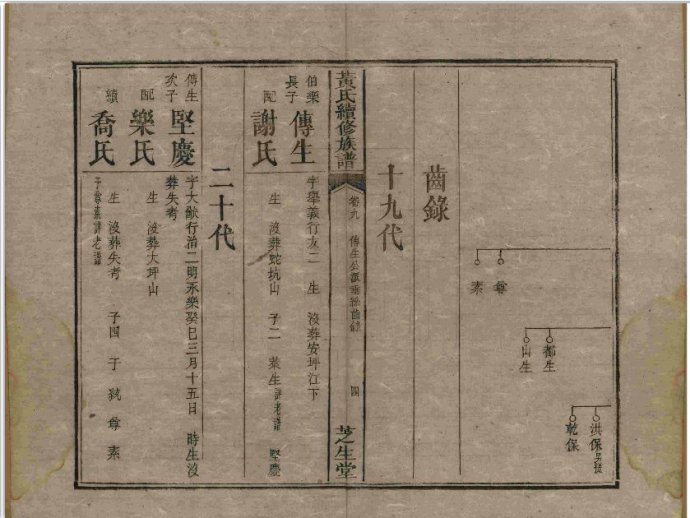 洪保
乾保
都生
山生
尊
素
齒錄
十九代
黃氏續修族譜
卷九
四
芝生堂
伯樂長子
傳生
字舉義行友二 生 沒葬安坪江下
配
謝氏
生 沒葬蛇坑山 子二 葉生 詳老譜 堅慶
二十代
傳生次子
堅慶
字大猷行治二明永樂癸巳三月十五日 時生沒葬失考
配
樂氏
生 沒葬大坪山
續
喬氏
生 沒葬失考 子四 于 尊 素